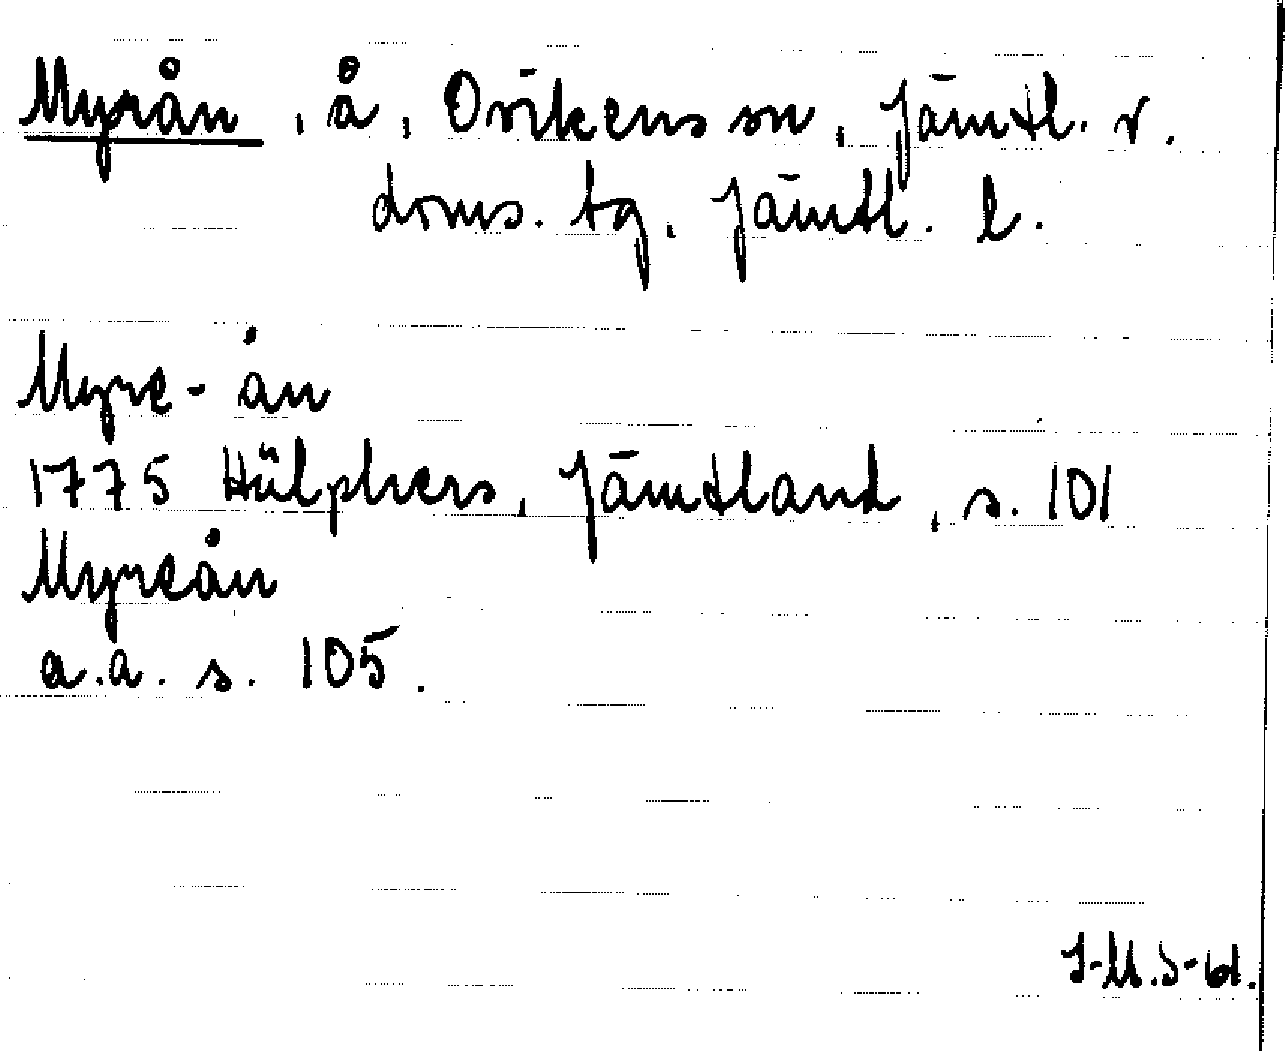 Myrån, å, Ovikens sn, Jämtl. v.
doms. tg, Jämtl. l.
Myre-ån
1775 Hülphers, Jämtland, s. 101
Myreån
a.a. s. 105.